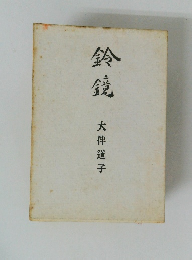 鈴鏡
大伴道子